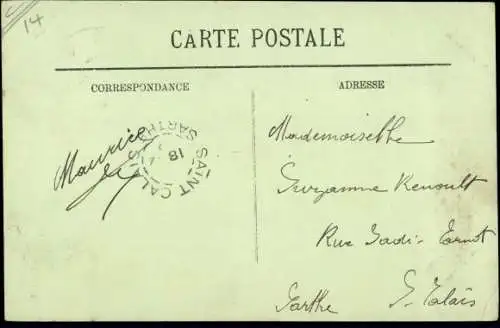 14
CARTE POSTALE
CORRESPONDANCE
ADRESSE
Maurice
SAINT CALAIS
SARTHE
18
Mademoiselle
Suzanne Renoult
Rue Sadi-Carnot
St Calais
Sarthe